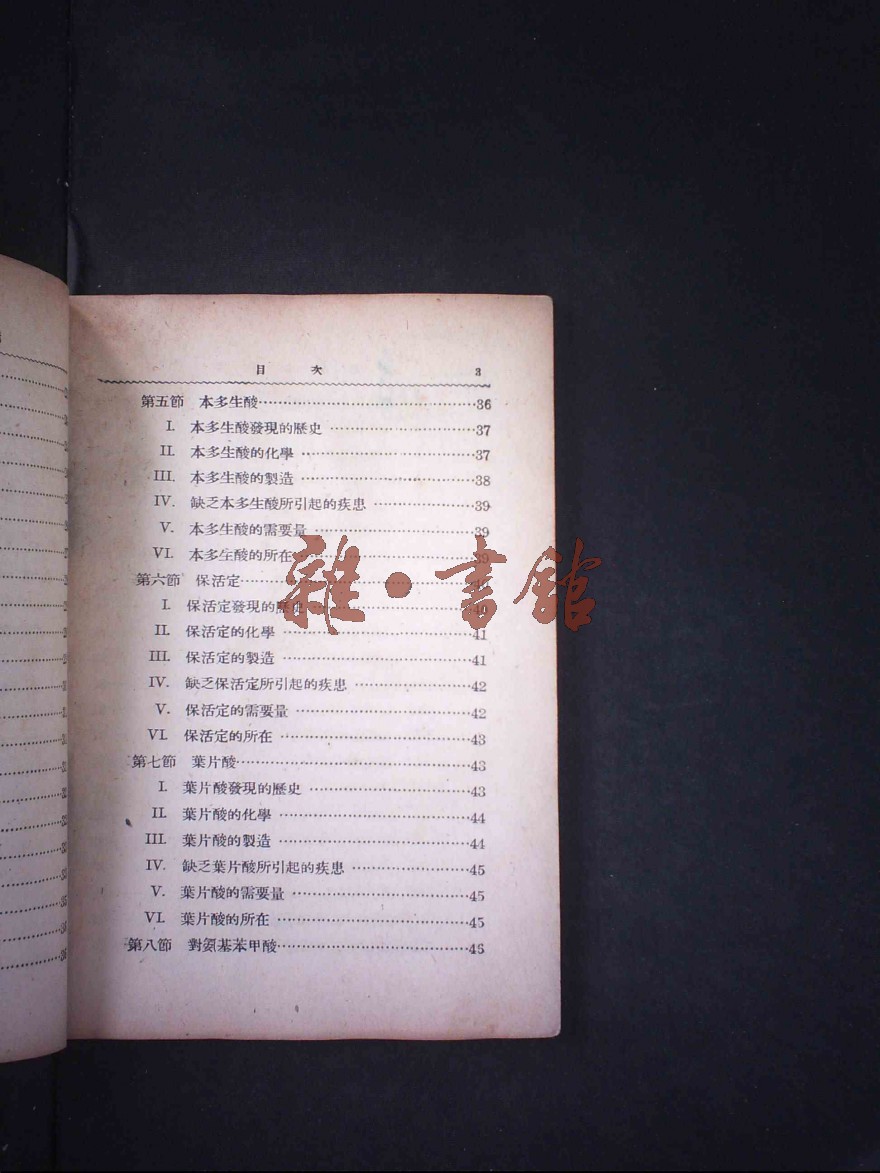 目 次 3
第五節 本多生酸……36
I. 本多生酸發現的歷史……37
II. 本多生酸的化學……37
III. 本多生酸的製造……38
IV. 缺乏本多生酸所引起的疾患……39
V. 本多生酸的需要量……39
VI. 本多生酸的所在……39
第六節 保活定……40
I. 保活定發現的歷史……40
II. 保活定的化學……41
III. 保活定的製造……41
IV. 缺乏保活定所引起的疾患……42
V. 保活定的需要量……42
VI. 保活定的所在……43
第七節 葉片酸……43
I. 葉片酸發現的歷史……43
II. 葉片酸的化學……44
III. 葉片酸的製造……44
IV. 缺乏葉片酸所引起的疾患……45
V. 葉片酸的需要量……45
VI. 葉片酸的所在……45
第八節 對氨基苯甲酸……46
雜·書館